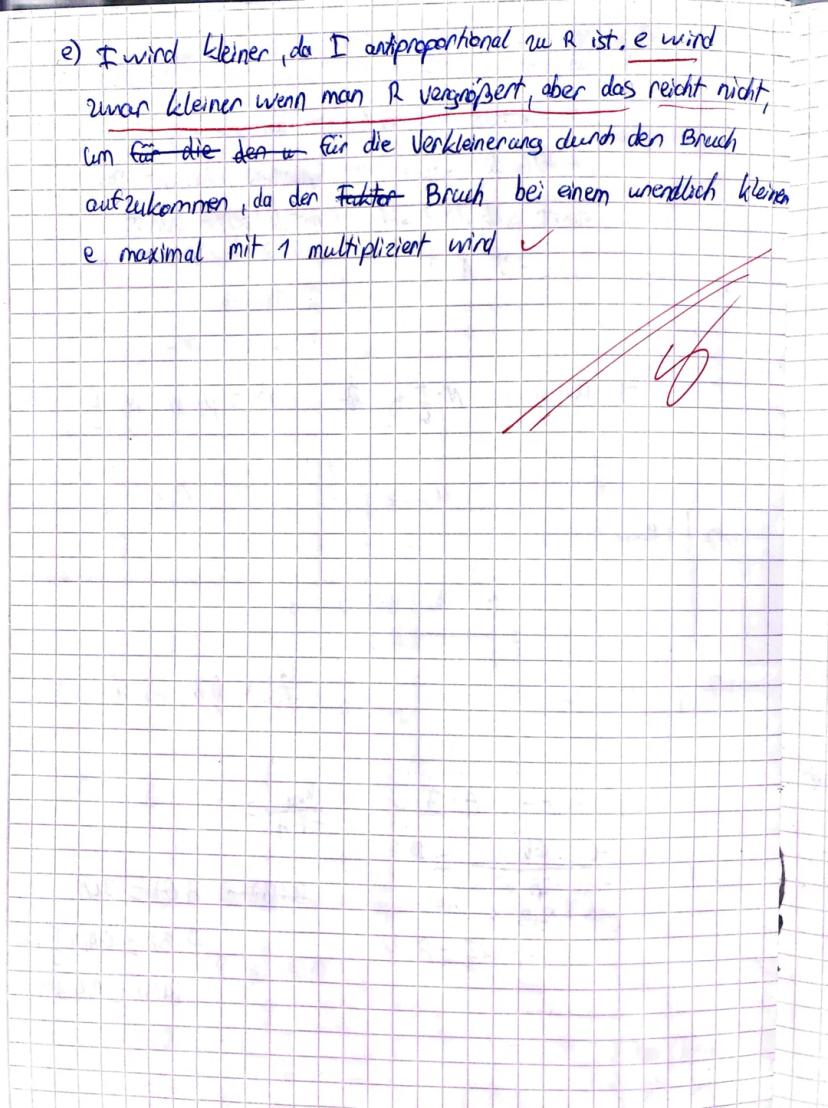 e) I wird kleiner, da I antiproportional zu R ist. e wird
zwar kleiner wenn man R vergrößert, aber das reicht nicht,
um für die den u für die Verkleinerung durch den Bruch
aufzukommen, da der Faktor Bruch bei einem unendlich kleinen
e maximal mit 1 multipliziert wird ✓